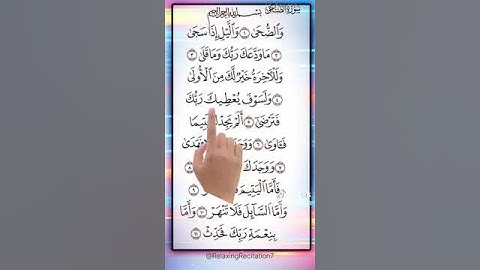 سُورَةُ الضُّحَى
بِسْمِ اللَّهِ الرَّحْمَٰنِ الرَّحِيمِ
وَالضُّحَىٰ ١ وَاللَّيْلِ إِذَا سَجَىٰ
٢ مَا وَدَّعَكَ رَبُّكَ وَمَا قَلَىٰ ٣
وَلَلْآخِرَةُ خَيْرٌ لَّكَ مِنَ الْأُولَىٰ
٤ وَلَسَوْفَ يُعْطِيكَ رَبُّكَ
فَتَرْضَىٰ ٥ أَلَمْ يَجِدْكَ يَتِيمًا
فَـَٔاوَىٰ ٦ وَوَجَدَكَ فَهَدَىٰ
٧ وَوَجَدَكَ ٨
فَأَمَّا الْيَتِيمَ فَلَا ٩
وَأَمَّا السَّائِلَ فَلَا تَنْهَرْ ١٠ وَأَمَّا
بِنِعْمَةِ رَبِّكَ فَحَدِّثْ ١١
@RelaxingRecitation7